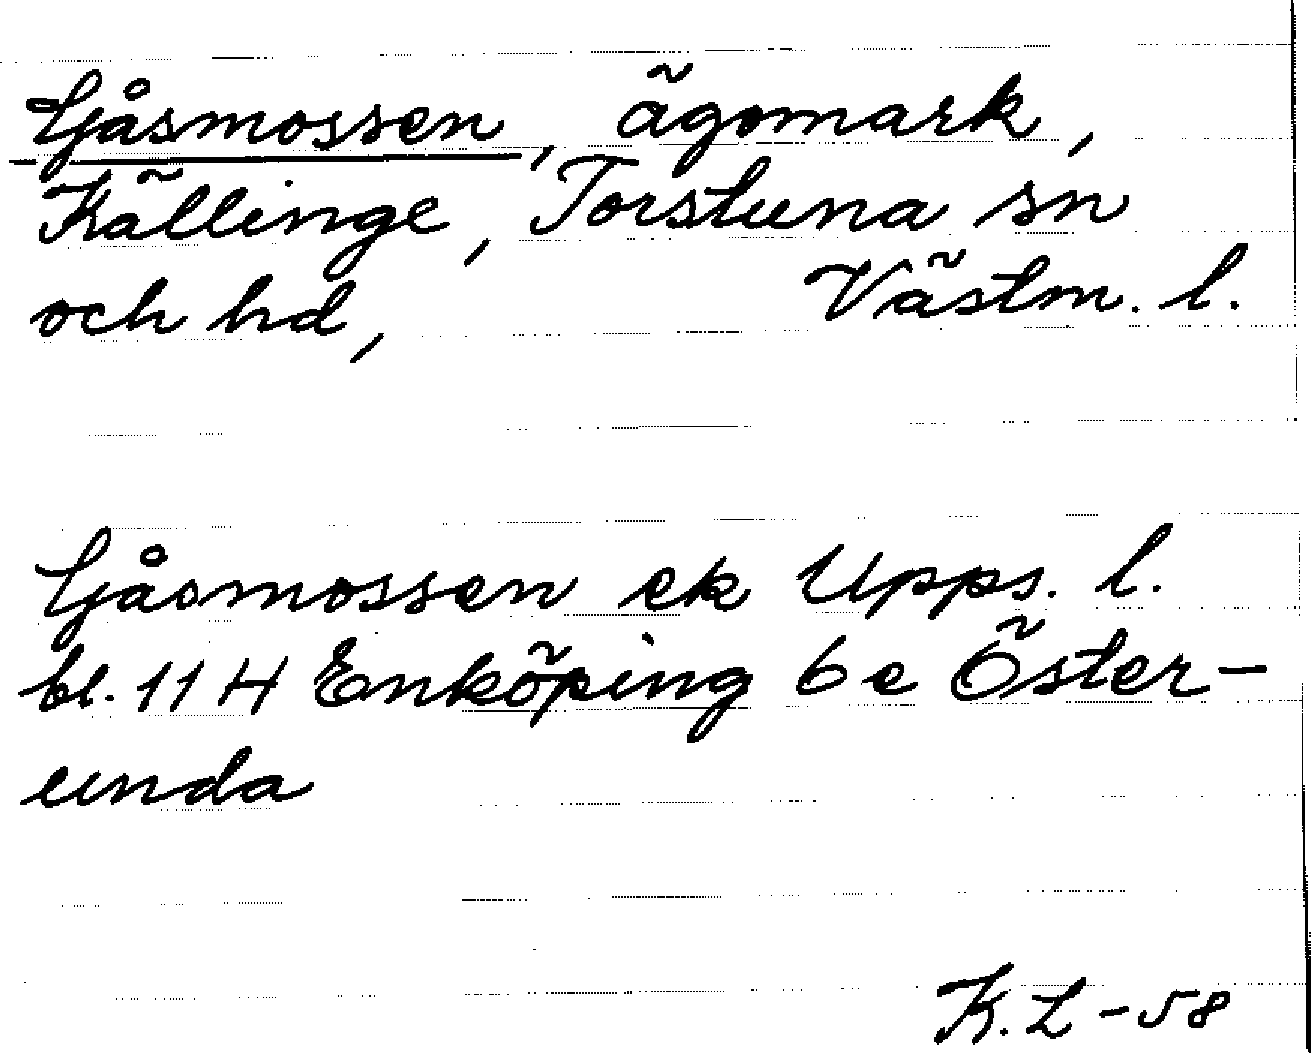 Gåsmossen, ägomark,
Källinge, Torstuna sn
och hd, Västm. l.
Gåsmossen ek Upps. l.
bl. 11 H Enköping 6 e Öster-
unda
K. L - 58